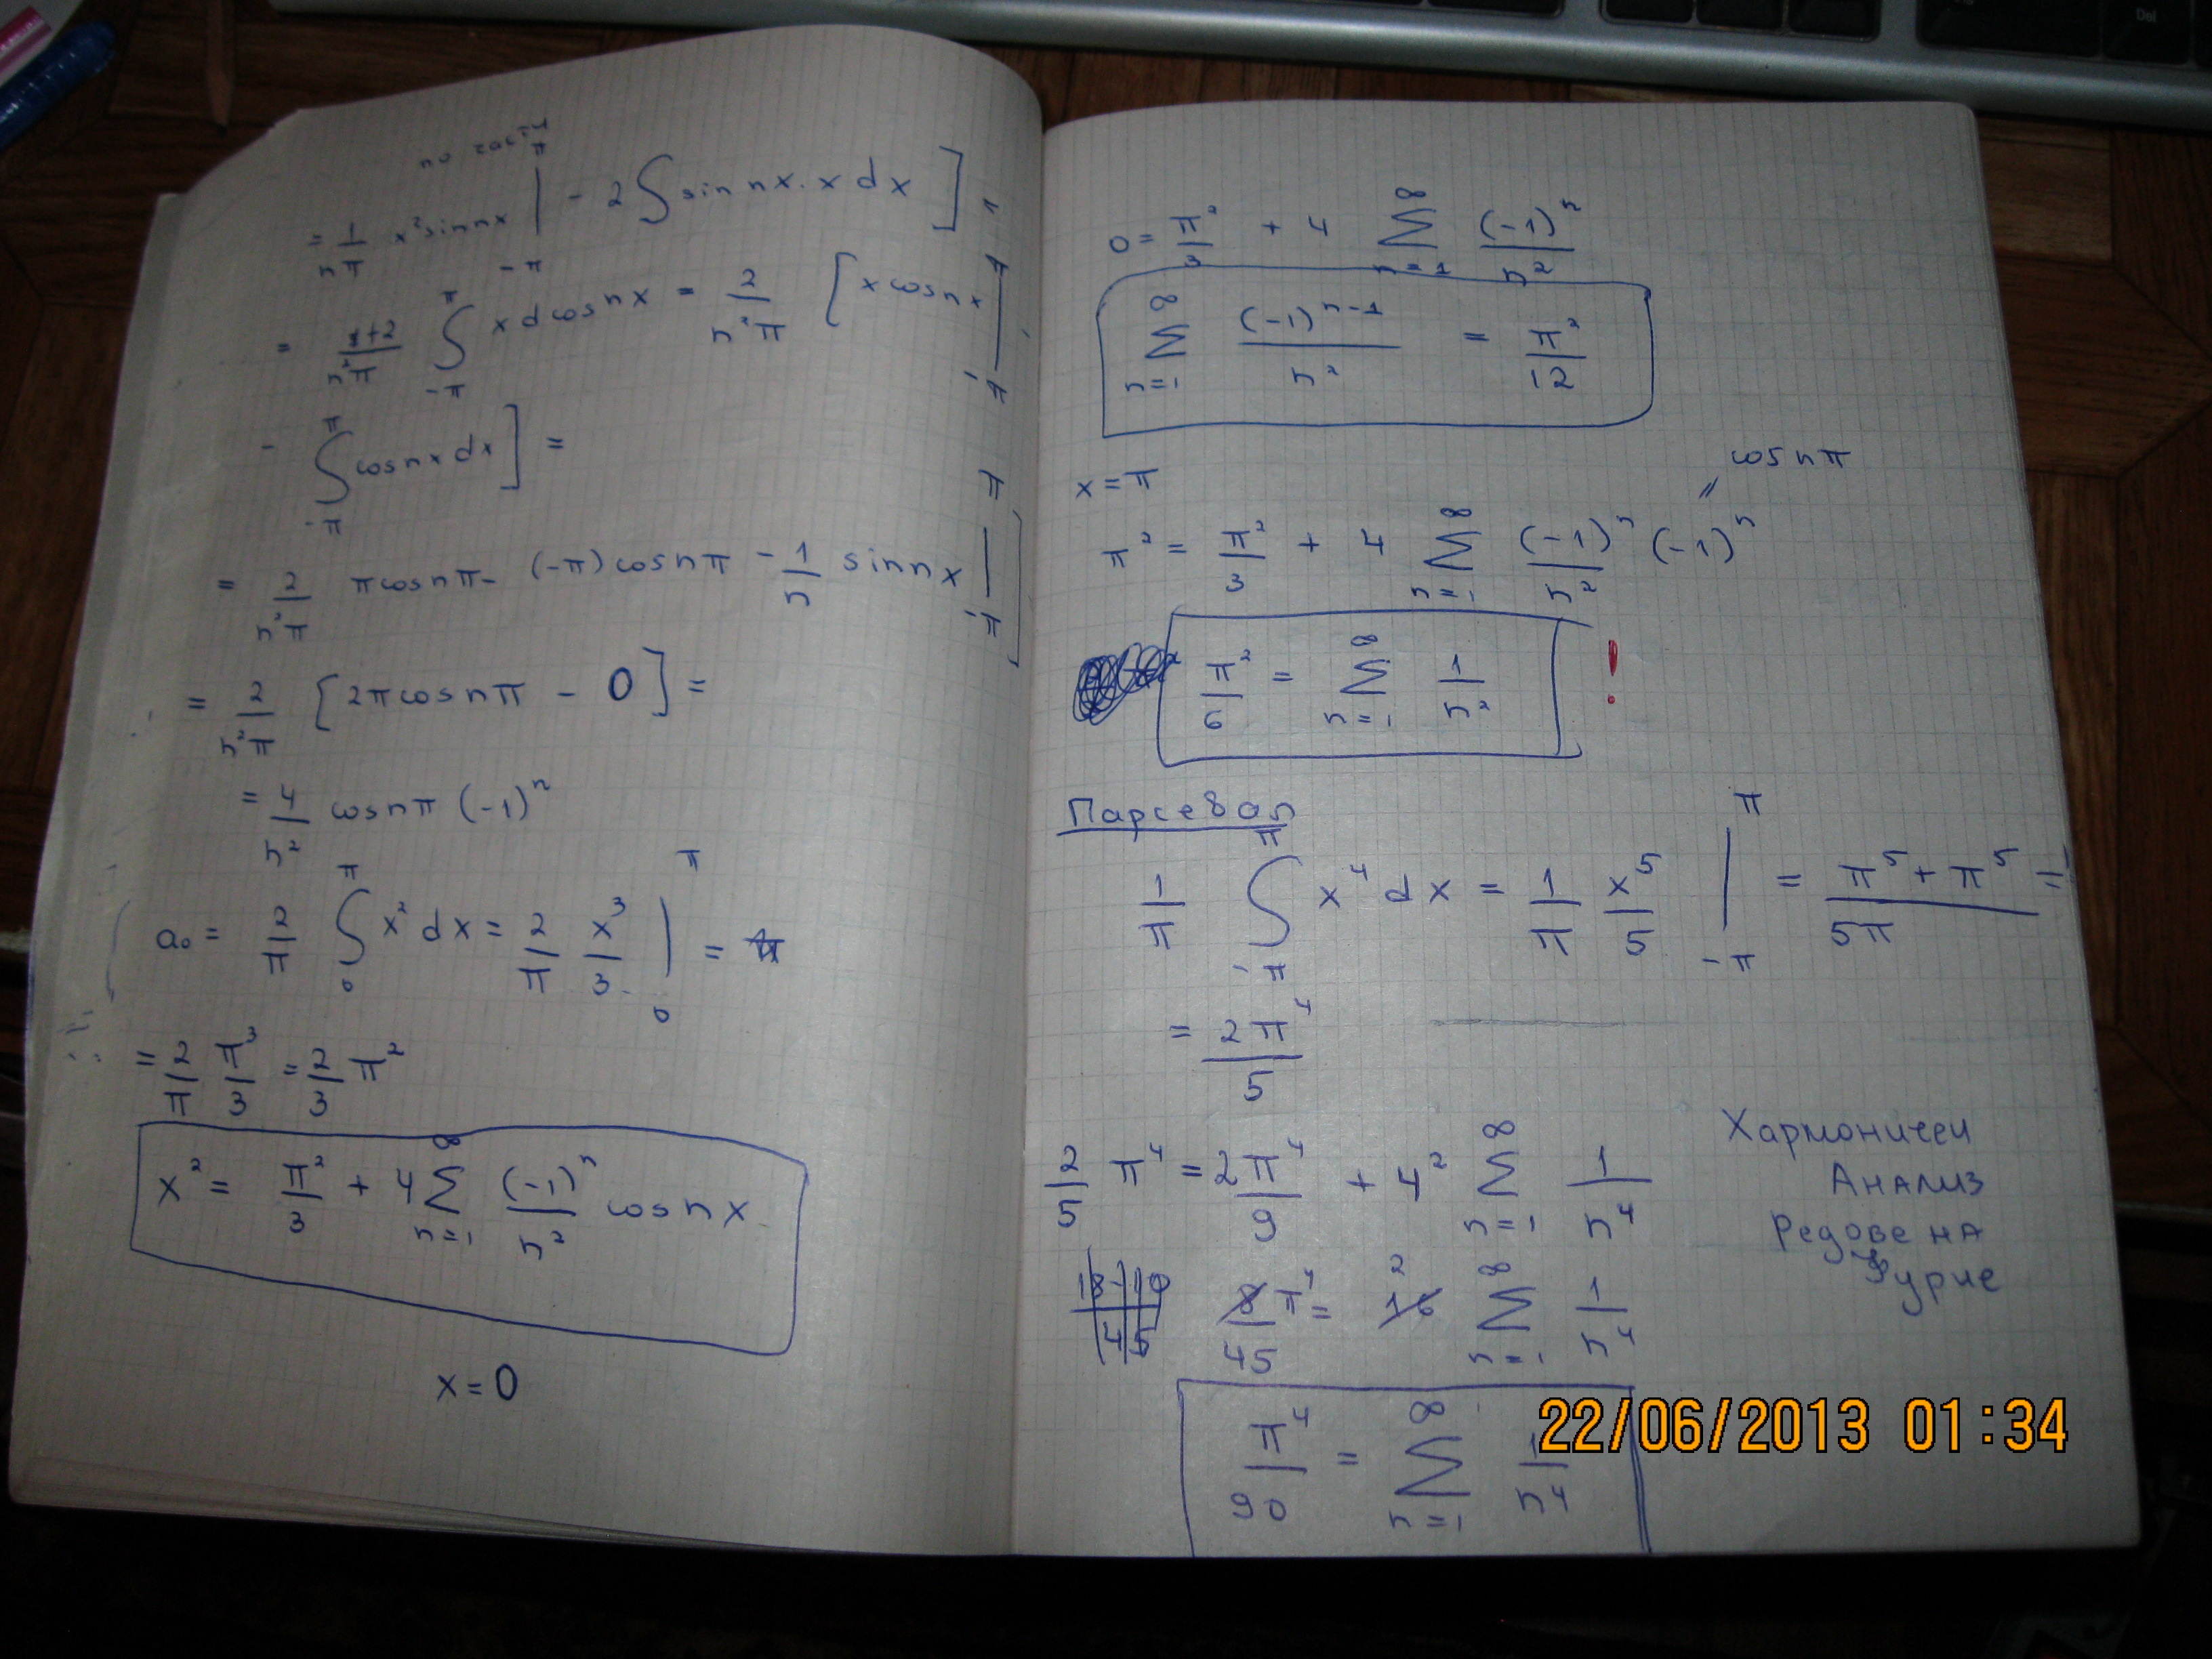 по части
= 1/nπ x² sin nx |_{-π}^{π} - 2 ∫ sin nx . x dx ]
= 2/n²π ∫_{-π}^{π} x d cos nx = 2/n²π [ x cos nx |_{-π}^{π}
- ∫_{-π}^{π} cos nx dx ] =
= 2/n²π π cos nπ - (-π) cos nπ - 1/n sin nx |_{-π}^{π} ]
= 2/n²π [ 2π cos nπ - 0 ] =
= 4/n² cos nπ (-1)ⁿ
a₀ = 2/π ∫_0^π x² dx = 2/π x³/3 |_0^π =
= 2/π π³/3 = 2/3 π²
x² = π²/3 + 4 ∑_{n=1}^∞ (-1)ⁿ/n² cos nx
x = 0
0 = π²/3 + 4 ∑_{n=1}^∞ (-1)ⁿ/n²
∑_{n=1}^∞ (-1)^{n-1}/n² = π²/12
x = π
= cos nπ
π² = π²/3 + 4 ∑_{n=1}^∞ (-1)ⁿ/n² (-1)ⁿ
π²/6 = ∑_{n=1}^∞ 1/n² !
Парсевал
1/π ∫_{-π}^{π} x⁴ dx = 1/π x⁵/5 |_{-π}^{π} = (π⁵ + π⁵)/5π =
= 2π⁴/5
2/5 π⁴ = 2π⁴/9 + 4² ∑_{n=1}^∞ 1/n⁴
18-10/45 8/45 π⁴ = 16 2 ∑_{n=1}^∞ 1/n⁴
π⁴/90 = ∑_{n=1}^∞ 1/n⁴
Хармоничен
Анализ
Редове на
Фурие
22/06/2013 01:34
Del